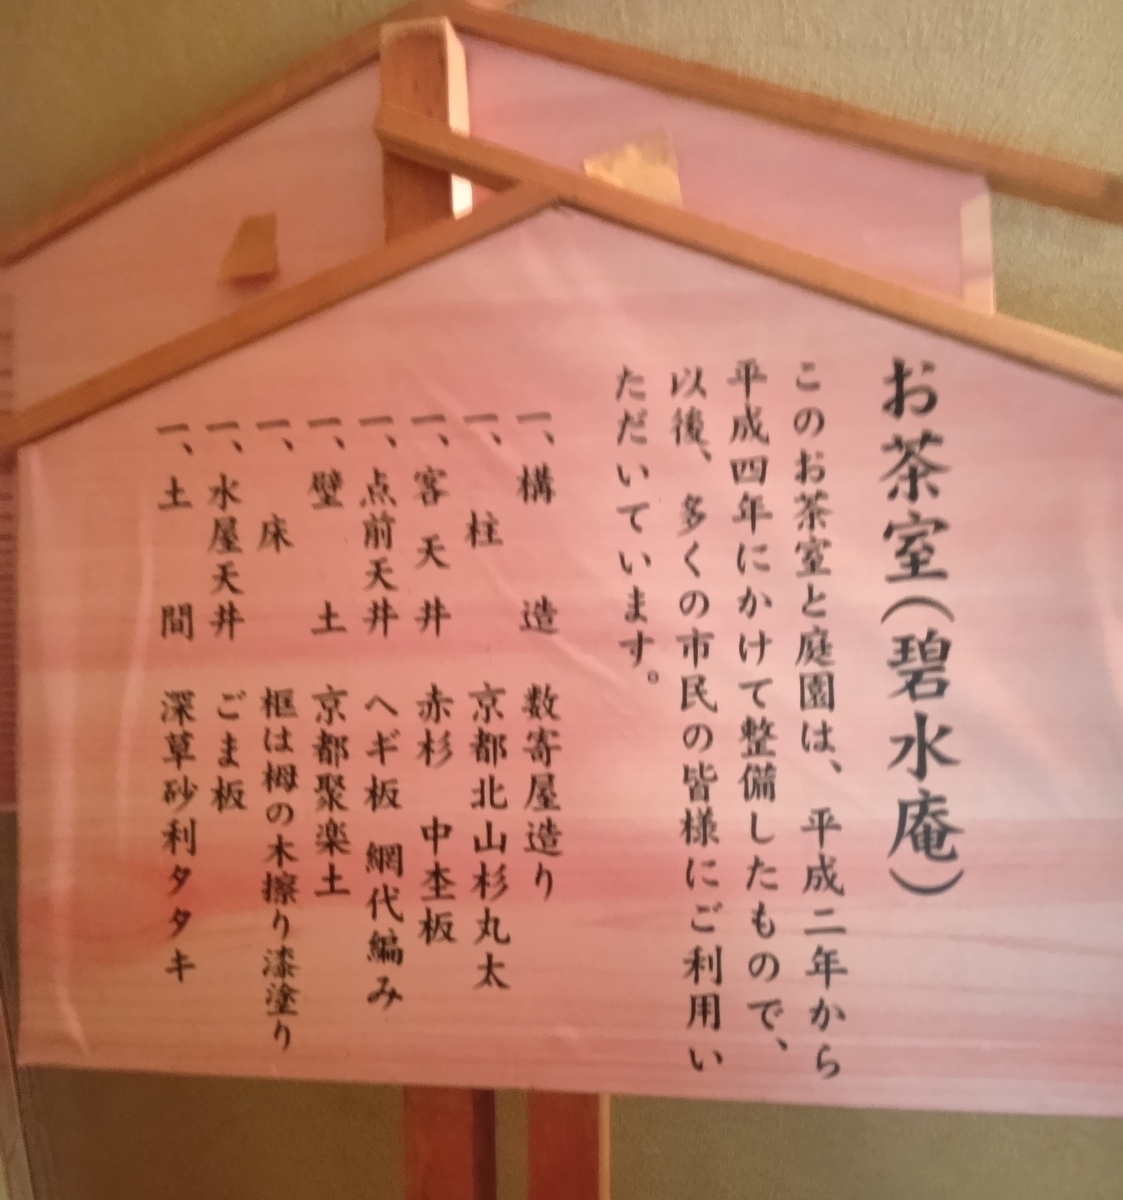 お茶室（碧水庵）
このお茶室と庭園は、平成二年から
平成四年にかけて整備したもので、
以後、多くの市民の皆様にご利用い
ただいています。
一、構造 数寄屋造り
一、柱 京都北山杉丸太
一、客天井 赤杉 中杢板
一、点前天井 ヘギ板 網代編み
一、壁土 京都聚楽土
一、床 框は栂の木擦り漆塗り
一、水屋天井 ごま板
一、土間 深草砂利タタキ